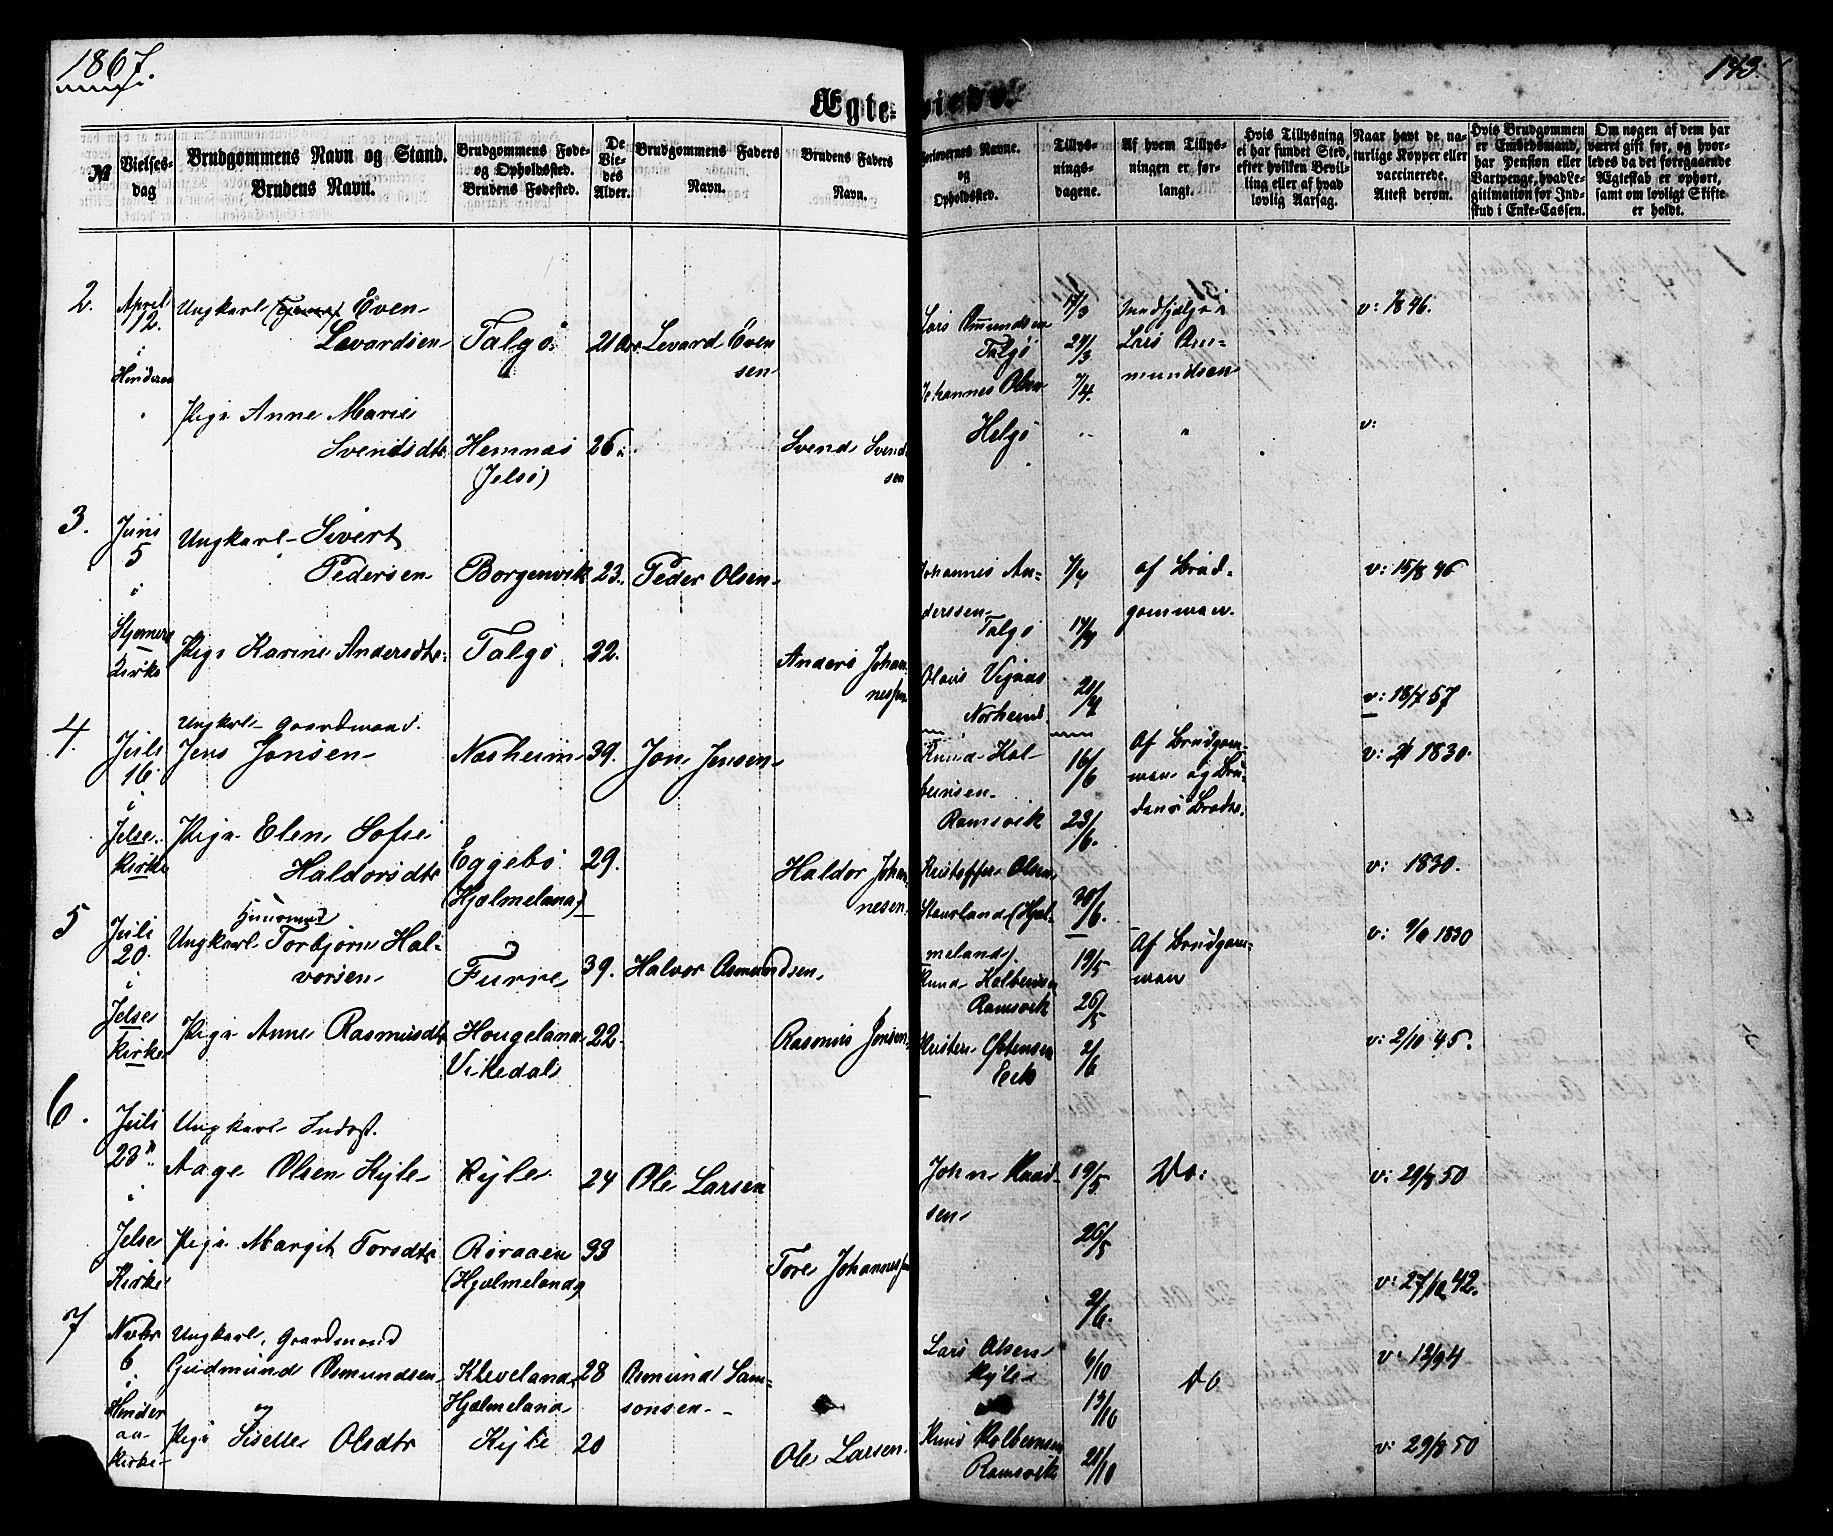 1867.
143.
Ægte-viede.
№
Vielses-dag
Brudgommens Navn og Stand.
Brudens Navn.
Brudgommens Føde- og Opholdssted.
Brudens Fødested.
De Vie-des Alder.
Brudgommens Faders Navn.
Brudens Faders Navn.
Forlovernes Navne.
og
Opholdssted.
Tillys-nings-dagene.
Af hvem Tillys-ningen er for-langt.
Hvis Tillysning ei har fundet Sted, efter hvilken Bevil-ling eller af hvad lovlig Aarsag.
Naar havt de na-turlige Kopper eller vaccinerede.
Attest derom.
Hvis Brudgommen er Embedsmand, har Pension eller Vartpenge, hvad Le-gitimation for Ind-skud i Enke-Cassen.
Om nogen af dem har været gift før, og hvor-ledes da det foregaaende Ægteskab er ophørt, samt om lovligt Skifte er holdt.
2.
April 12.
i
Ungkarl Even
Levardsen
Talgø
21 Aar
Levard Even
sen
Lars Amundsen
Talgø
17/3
24/3
Lars Am-
mundsen
Johannes Olsen
7/4.
Helgø
Pige Anne Marie
Svendsdtr.
Hemnæs
(Jelsø)
26.
Svend Svend
sen
v:
3.
Juni
5
i
Kirke
Ungkarl Sivert
Pedersen
Borgenvik
23.
Peder Olsen
Johannes An-
derssen
Talgø
7/4
af Brud-
gommen.
v: 15/8 46
Pige Karine Andersdtr.
Talgø
22.
Anders Johan
nessen
v: 18/7 57
4.
Juli
16.
i
Jelse
Kirke
Ungkarl Gaardmand.
Jens Jonsen
Nærheim
39.
Jon Jensen
Knud Kol-
beinsen
Ramsvik
16/6
23/6.
30/6.
Af Brudgom-
men og Bru-
dens Broder.
Pige Elen Sofie
Haldorsdtr
Eggebø
(Hjelmeland)
29.
Haldor Johan
nesen
Kristoffer Olsen
(Hjel-
meland).
v: 1830.
5
Juli
20.
i
Jelse
Kirke
Husmand
Ungkarl Torbjørn Hal-
vorsen
Furre
39.
Halvor Asmundsen
Knud Kolbeinsen
Ramsvik
19/5
26/5
2/6
Af Brudgom-
men
Pige Anne Rasmusdtr
Hougeland
Vikedal
22.
Rasmus Jensen
v: 2/10 45.
6.
Juli
23
i
Jelse
Kirke
Ungkarl Inderst.
Aage Olsen Kyle
Kyle
24
Ole Larsen
John Knud-
sen
19/5
26/5
2/6.
Do:
v: 29/8 50
Pige Margit Torsdtr
Røraaen
(Hjelmeland)
33
Tore Johannessen
v: 27/10 42.
7
Novbr
6
i
Hinder
aa
Kirke
Ungkarl, Gaardmand
Gudmund Asmundsen
Kleveland
Hjelmeland
28
Asmund Sam-
sonsen
Lars Olsen
Kyle
6/10
13/10
Do
og
Pige Siselle Olsdtr
Kyle
20
Ole Larsen
Knud Kolbeinsen
Ramsvik
v: 29/8 50